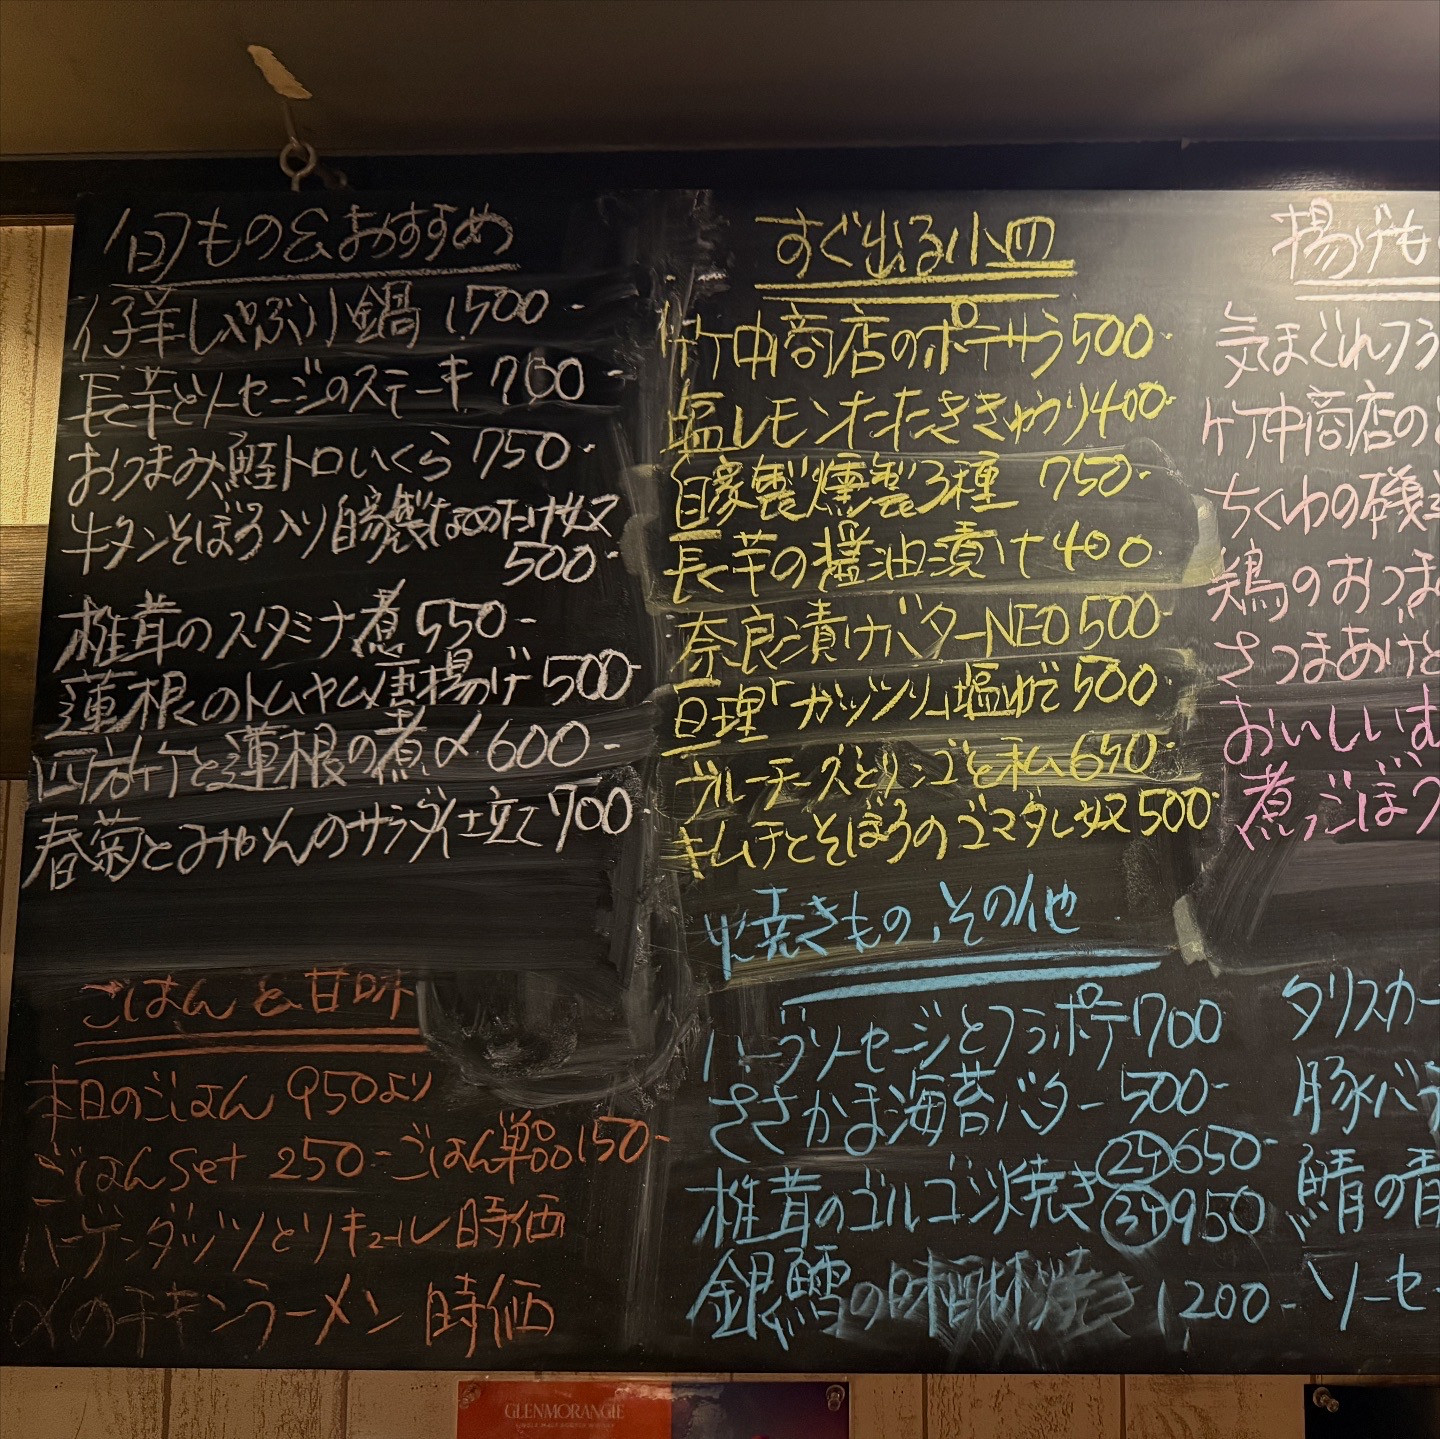 旬もの&おすすめ
仔羊しゃぶ小鍋 1,500-
長芋とソーセージのステーキ 700-
おつまみ鮭トロいくら 750-
牛タンそぼろ入り自家製なめたけ奴
500-
椎茸のスタミナ煮 550-
蓮根のトムヤム唐揚げ 500-
四岩竹と蓮根の煮〆 600-
春菊とみかんのサラダ仕立て 700-
ごはんと甘味
本日のごはん 950より
ごはんset 250- ごはん単品150-
ハーゲンダッツとリキュール 時価
〆のチキンラーメン 時価
すぐ出る小皿
竹中商店のポテサラ 500-
塩レモンたたききゅうり 400-
自家製燻製3種 750-
長芋の醤油漬け 400-
奈良漬けバターNEO 500-
亘理「ガッツリ」塩ゆで 500-
ブルーチーズとリンゴと私 650-
キムチとそぼろのゴマダレ奴 500-
焼きもの、その他
ハーブソーセージとフライポテ 700
ささかま海苔バター 500-
椎茸のゴルゴンゾ焼き 2ヶ 650-
3ヶ 950
銀鱈の味醂焼き 1,200-
揚げも
気まぐれフラ
竹中商店の
ちくわの磯辺
鶏のおつま
さつまあげと
おいしいす
煮ごぼう
タリスカー
豚バラ
鯖の青
ソーセ
GLENMORANGIE